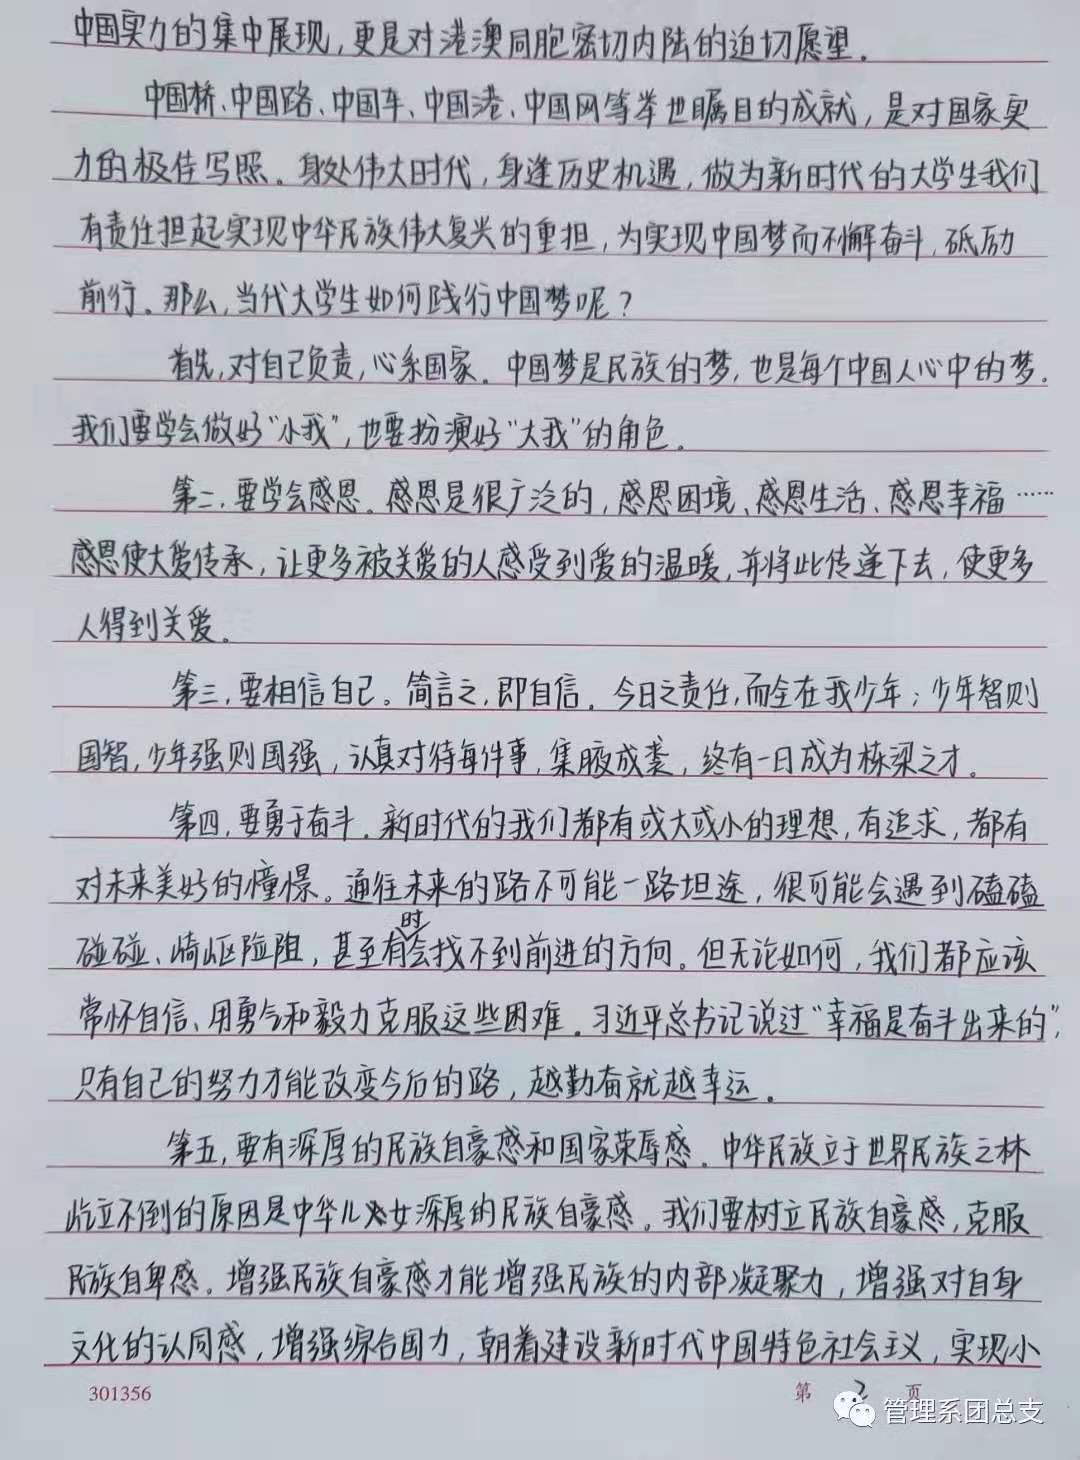 中国实力的集中展现，更是对港澳同胞密切内陆的迫切愿望。
中国桥、中国路、中国车、中国港、中国网等举世瞩目的成就，是对国家实
力的极佳写照。身处伟大时代，身逢历史机遇，做为新时代的大学生我们
有责任担起实现中华民族伟大复兴的重担，为实现中国梦而不懈奋斗，砥励
前行。那么，当代大学生如何践行中国梦呢？
首先，对自己负责，心系国家。中国梦是民族的梦，也是每个中国人心中的梦。
我们要学会做好“小我”，也要扮演好“大我”的角色。
第二，要学会感恩。感恩是很广泛的，感恩困境、感恩生活、感恩幸福……
感恩使大爱传承，让更多被关爱的人感受到爱的温暖，并将此传递下去，使更多
人得到关爱。
第三，要相信自己。简言之，即自信。今日之责任，而全在我少年；少年智则
国智，少年强则国强，认真对待每件事，集腋成裘，终有一日成为栋梁之才。
第四，要勇于奋斗。新时代的我们都有或大或小的理想，有追求，都有
对未来美好的憧憬。通往未来的路不可能一路坦途，很可能会遇到磕磕
碰碰、崎岖险阻，甚至有时会找不到前进的方向。但无论如何，我们都应该
常怀自信、用勇气和毅力克服这些困难。习近平总书记说过“幸福是奋斗出来的”，
只有自己的努力才能改变今后的路，越勤奋就越幸运。
第五，要有深厚的民族自豪感和国家荣辱感。中华民族立于世界民族之林
屹立不到的原因是中华儿女深厚的民族自豪感。我们要树立民族自豪感，克服
民族自卑感。增强民族自豪感才能增强民族的内部凝聚力，增强对自身
文化的认同感，增强综合国力，朝着建设新时代中国特色社会主义，实现小
301356 第 2 页
管理系团总支